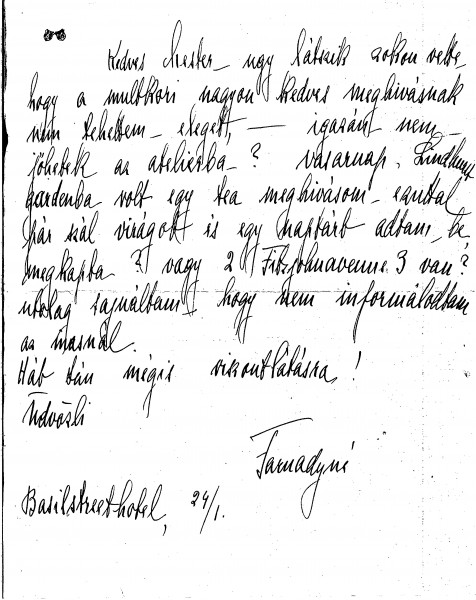 Kedves Mester – ugy látszik zokon vette,
hogy a multkori nagyon kedves meghivásnak
nem tehettem – eleget, — igazán nem –
jöhetek az atelierba – ? vasarnap,
gardenba volt egy tea meghivásom – egyuttal
pár szál virágott is egy naptárb adtam, be
megkapta ? vagy 2 Fitzjohnavenue 3 van ?
utolag sajnáltam – hogy nem informálodtam
az masnál.
Hát tán mégis viszontlátásra !
Üdvözli
Farnadyné
Basilstreethotel, 24/1.